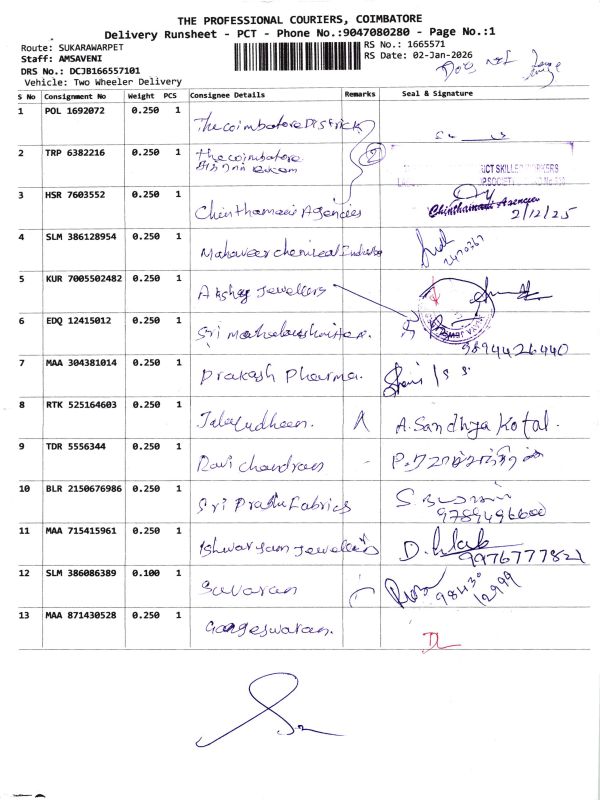 THE PROFESSIONAL COURIERS, COIMBATORE
Delivery Runsheet - PCT - Phone No.:9047080280 - Page No.:1
Route: SUKARAWARPET
RS No.: 1665571
Staff: AMSAVENI
RS Date: 02-Jan-2026
DRS No.: DCJB166557101
Vehicle: Two Wheeler Delivery
Does not
S No Consignment No Weight PCS Consignee Details Remarks Seal & Signature
1 POL 1692072 0.250 1 The coimbatore District
2 TRP 6382216 0.250 1 the coimbatore 2 UCT SKILLED WORKERS
3 HSR 7603552 0.250 1 Chinthamani Agencies Chinthamani Agencies
2/12/25
4 SLM 386128954 0.250 1 Mahaveer chemical Industry
5 KUR 7005502482 0.250 1 Akshay Jewellers
6 EDQ 12415012 0.250 1 Sri Mahalakshmi 9894426440
7 MAA 304381014 0.250 1 Prakash Pharma.
8 RTK 525164603 0.250 1 Jalaludheen. A. Sandhya Kotal.
9 TDR 5556344 0.250 1 Ravi chandran
10 BLR 2150676986 0.250 1 Sri Prabu Fabrics
9789496600
11 MAA 715415961 0.250 1 Ishwaryam Jewellers 9976777821
12 SLM 386086389 0.100 1 Savaran 98430
12999
13 MAA 871430528 0.250 1 Gangeswaran.